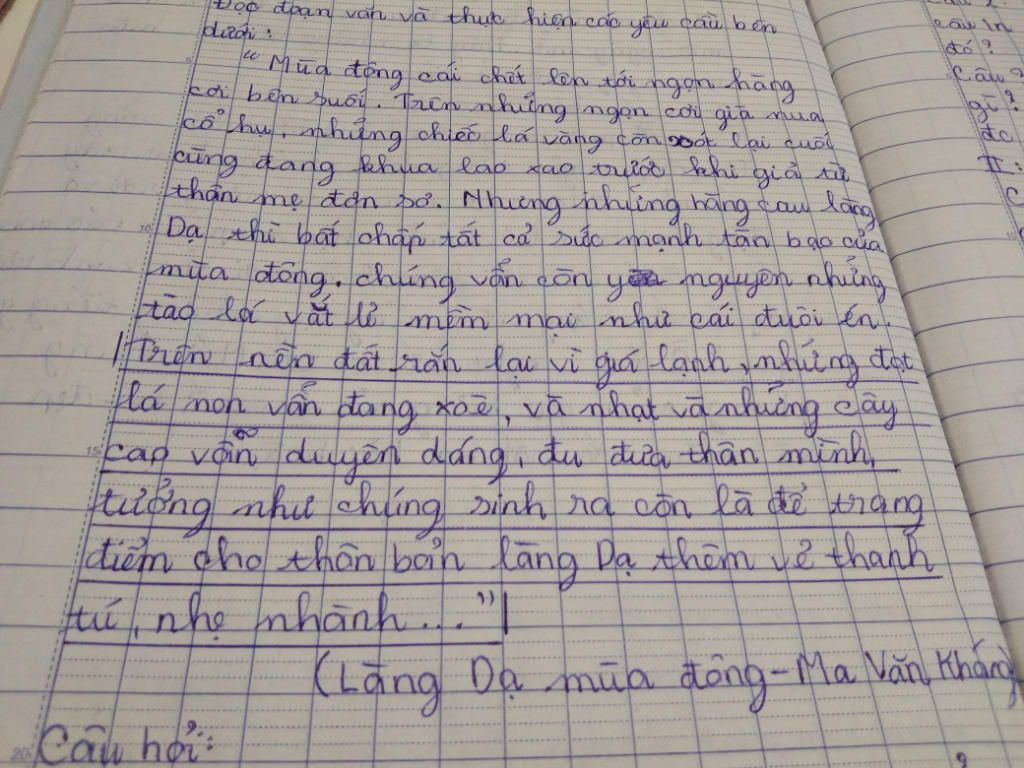 Đọc đoạn văn và thực hiện các yêu cầu bên
dưới:
"Mùa đông cái chết lên tới ngọn hàng
cơi bên suối. Trên những ngọn cơi già nua
cổ hu, những chiếc lá vàng còn sót lại cuối
cùng đang khua lao xao trước khi giã từ
thân mẹ đơn sơ. Nhưng những hàng cau làng
Dạ thì bất chấp tất cả sức mạnh tàn bạo của
mùa đông. chúng vẫn còn y nguyên những
tào lá vắt lẻ mềm mại như cái đuôi én.
Trên nền đất rắn lại vì giá lạnh, những đọt
lá non vẫn đang xoè, và nhạt và những cây
cao vẫn duyên dáng, đu đưa thân mình,
tưởng như chúng sinh ra còn là để trang
điểm cho thôn bản làng Dạ thêm vẻ thanh
tú, nhẹ nhành..."
(Làng Dạ mùa đông-Ma Văn Kháng)
Câu hỏi:
câu
đó?
Câu
gì?
đc
II: